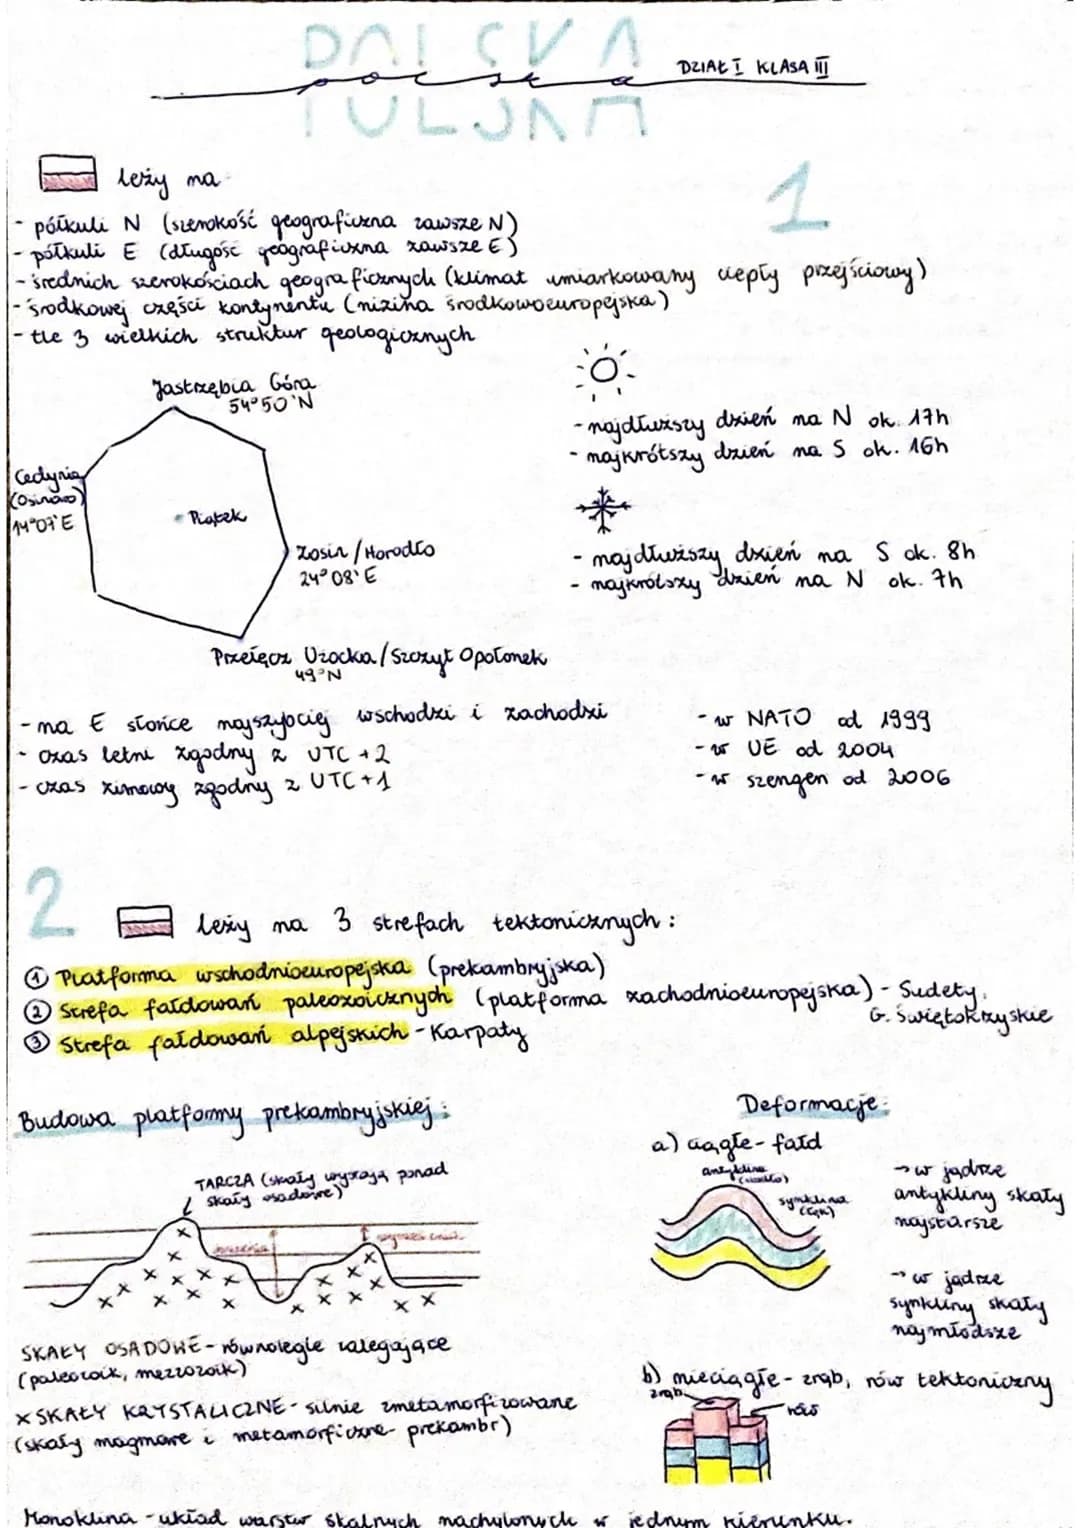 POLSKA
polska
DZIAŁ I KLASA III
1
leży na
- półkuli N (szerokość geograficzna zawsze N)
- półkuli E (długość geograficzna zawsze E)
- średnich szerokościach geograficznych (klimat umiarkowany ciepły przejściowy)
- środkowej części kontynentu (nizina środkowoeuropejska)
- tle 3 wielkich struktur geologicznych
Jastrzębia Góra
54°50'N
Cedynia
(Osinów)
14°07'E
Piątek
Zosin / Horodło
24°08'E
Przełęcz Użocka / Szczyt Opołonek
49°N
- najdłuższy dzień na N ok. 17h
- najkrótszy dzień na S ok. 16h
- najdłuższy dzień na S ok. 8h
- najkrótszy dzień na N ok. 7h
- na E słońce najszybciej wschodzi i zachodzi
- czas letni zgodny z UTC +2
- czas zimowy zgodny z UTC +1
- w NATO od 1999
- w UE od 2004
- w szengen od 2006
2
leży na 3 strefach tektonicznych:
① Platforma wschodnioeuropejska (prekambryjska)
② Strefa fałdowań paleozoicznych (platforma zachodnioeuropejska) - Sudety,
G. Świętokrzyskie
③ Strefa fałdowań alpejskich - Karpaty
Budowa platformy prekambryjskiej:
TARCZA (skały wystają ponad
skały osadowe)
SKAŁY OSADOWE - równolegle zalegające
(paleozoik, mezzozoik)
x SKAŁY KRYSTALICZNE - silnie zmetamorfizowane
(skały magmowe i metamorficzne - prekambr)
Deformacje:
a) ciągłe - fałd
antyklina
(siodło)
synklina
(łęk)
→ w jądrze
antykliny skały
najstarsze
→ w jądrze
synkliny skały
najmłodsze
b) nieciągłe - zrąb, rów tektoniczny
zrąb
rów
Monoklina - układ warstw skalnych nachylonych w jednym kierunku.